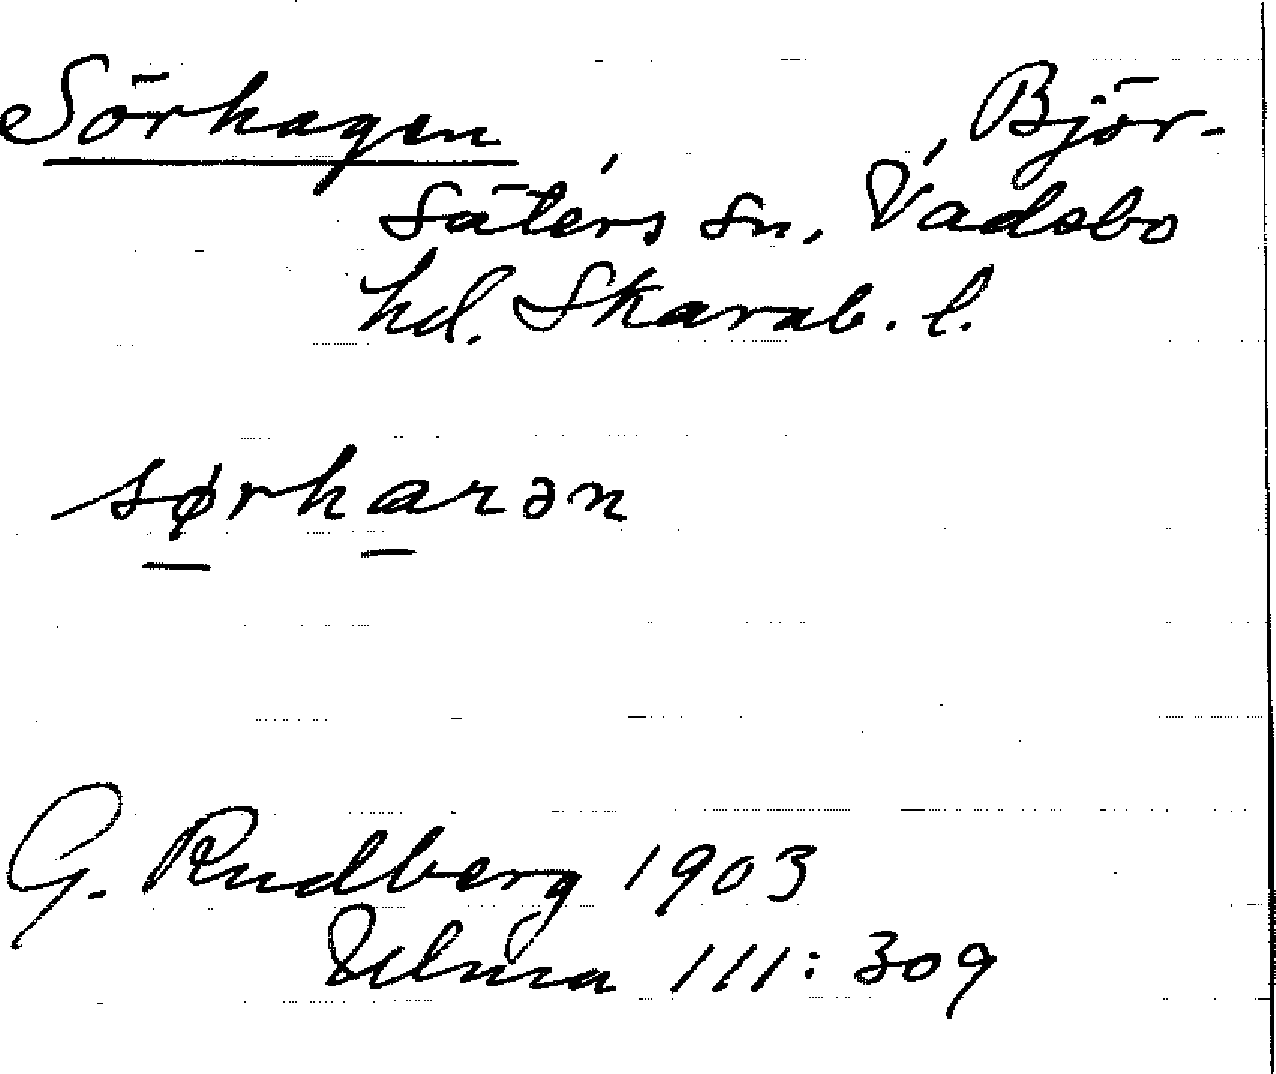 Sörhagen, Björ-
säters sn, Vadsbo
hd. Skarab. l.
sørharən
G. Rudberg 1903
Ulma 111: 309